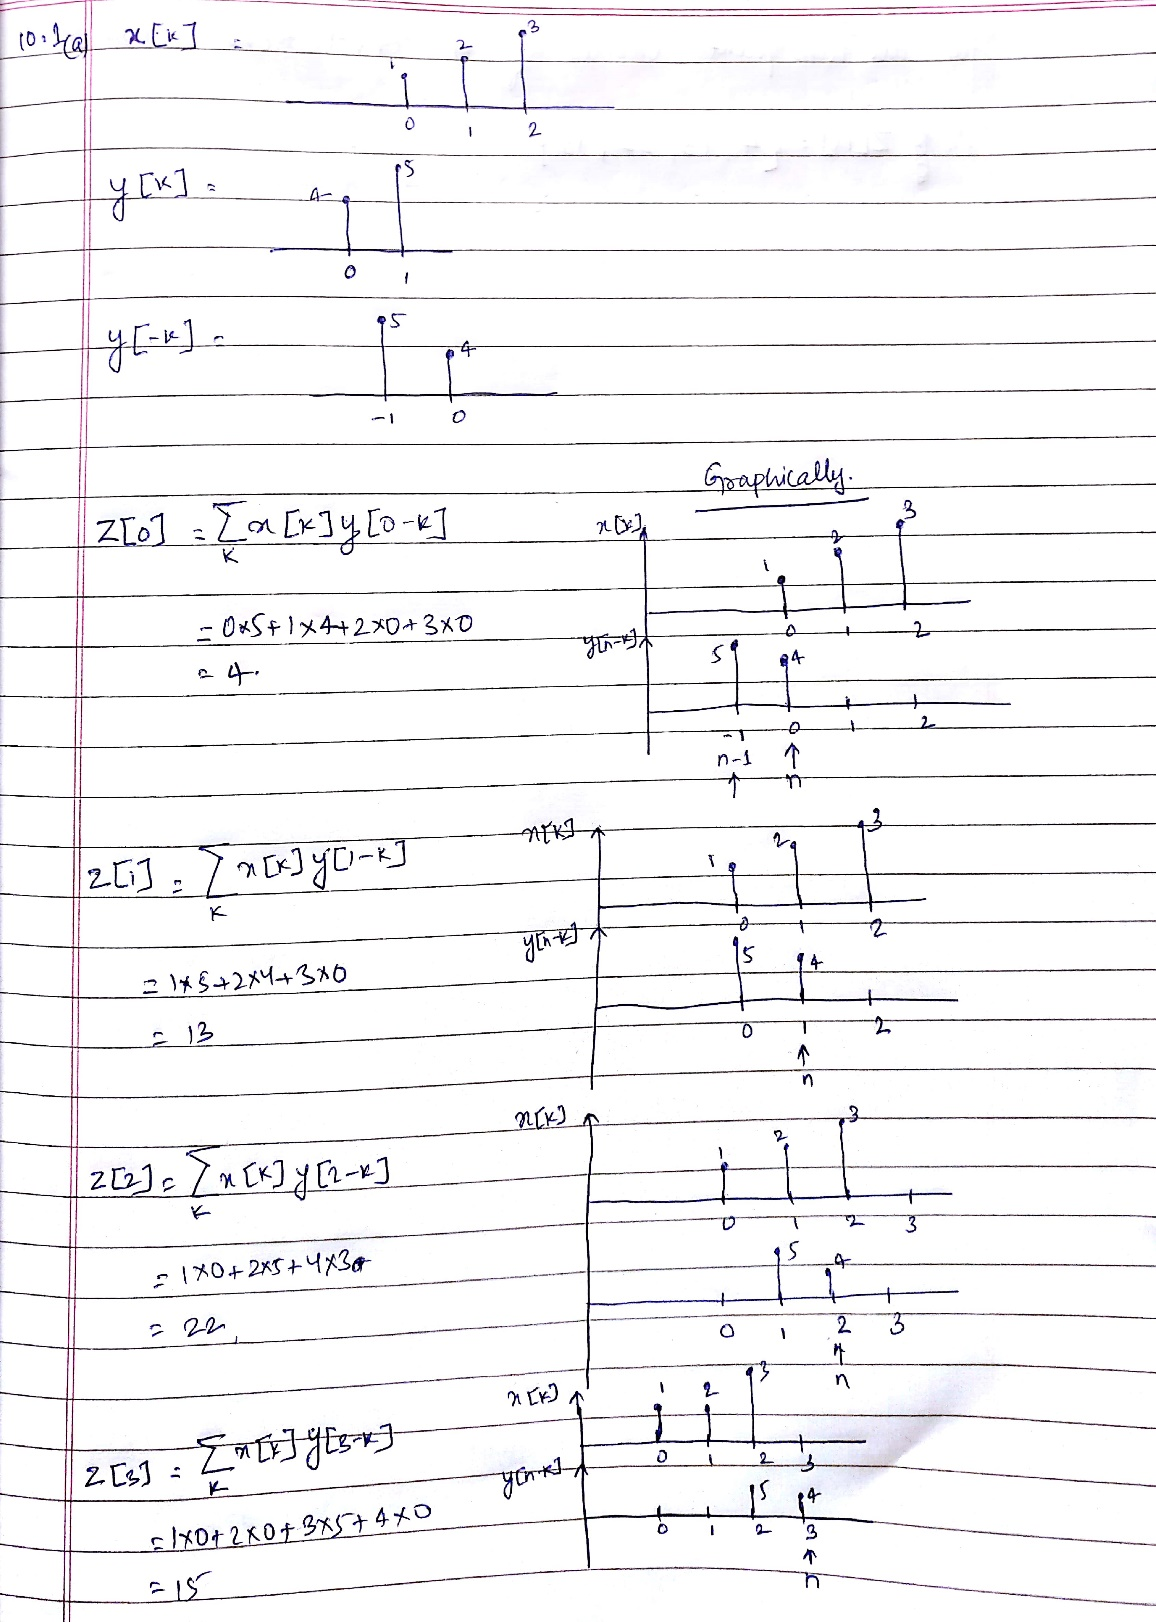 10.1(a) x[k] =
1 2 3
0 1 2
y[k] =
4 5
0 1
y[-k] =
5 4
-1 0
Graphically.
Z[0] = ∑ x[k] y[0-k]
K
= 0×5+1×4+2×0+3×0
= 4.
x[k]
1 2 3
0 1 2
y[n-k]
5 4
-1 0 1 2
n-1 ↑
↑ n
z[1] = ∑ x[k] y[1-k]
K
= 1×5+2×4+3×0
= 13
x[k]
1 2 3
0 1 2
y[n-k]
5 4
0 1 2
↑
n
z[2] = ∑ x[k] y[2-k]
K
= 1×0+2×5+4×3
= 22
x[k]
1 2 3
0 1 2 3
5 4
0 1 2 3
↑
n
z[3] = ∑ x[k] y[3-k]
K
= 1×0+2×0+3×5+4×0
= 15
x[k]
1 2 3
0 1 2 3
y[n-k]
5 4
0 1 2 3
↑
n